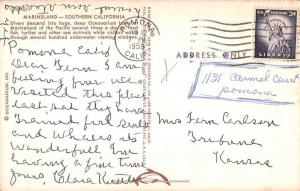 MARINELAND — SOUTHERN CALIFORNIA
Divers descend into huge, deep Oceanarium
Marineland of the Pacific several times a day to feed
fish, turtles and other sea animals while visitors watch
through several hundred underwater viewing windows.
POMONA
1959
CALIF.
U.S. POSTAGE 3¢
LIBERTY
ADDRESS ONLY
Pomona Calif
Dear Fern I am
feeling fine we
visited this place
last sat they have
Trained fish seals
and Whales its
Wonderful Im
having a fine time
yours, Clara
1131 Carmel Court
pomona
Mrs Fern Carlson
Tribune
Kansas
© OCEANARIUM, INC.